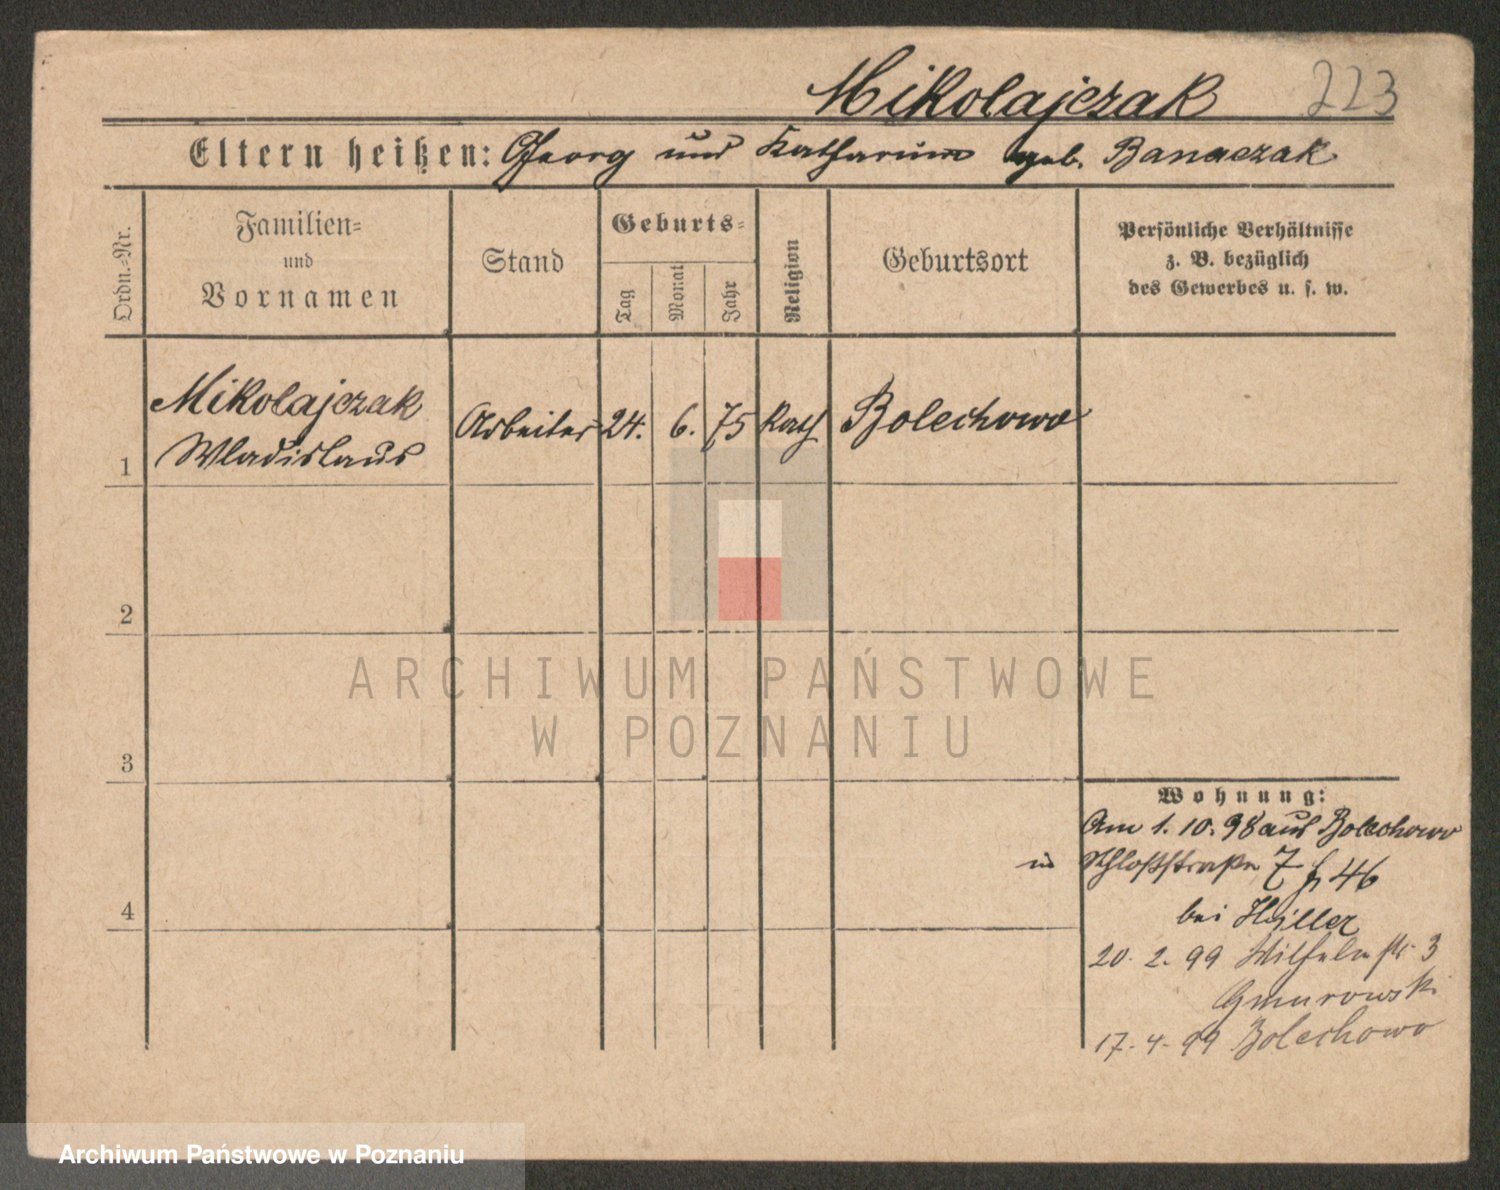 Mikolajczak 223
Eltern heißen: Georg und Katharina geb. Banaczak
Ordn.-Nr.
Familien-
und
Vornamen
Stand
Geburts-
Tag
Monat
Jahr
Religion
Geburtsort
Persönliche Verhältnisse
z. B. bezüglich
des Gewerbes u. s. w.
1
Mikolajczak
Wladislaus
Arbeiter
24.
6.
75
Kath
Bolechowo
2
3
4
Wohnung:
Am 1. 10. 98 aus Bolechowo
in Schloßstraße 7 46
bei
20. 2. 99 Wilhelmstr. 3
Gmurowski
17. 4. 99 Bolechowo
ARCHIWUM PAŃSTWOWE
W POZNANIU
Archiwum Państwowe w Poznaniu